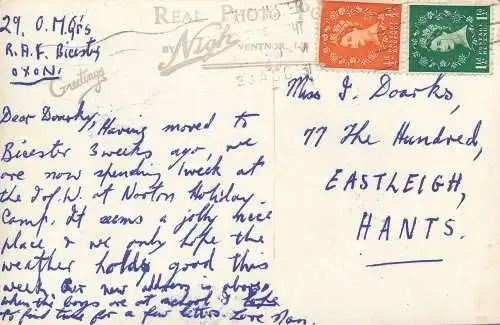 29. O.M.Qrs
R.A.F Bicester
OXON.
REAL PHOTO
BY Nigh VENTNOR, I.W.
Greetings
Dear Doarky, Having moved to
Bicester 3 weeks ago, we
are now spending 1 week at
the I of W. at Norton Holiday
Camp. It seems a jolly nice
place & we only hope the
weather holds good this
week. Our new address is above,
when the boys are at school I hope
to find time for a few letters. Love Nan.
Miss I. Doarks,
77 The Hundred,
EASTLEIGH,
HANTS.